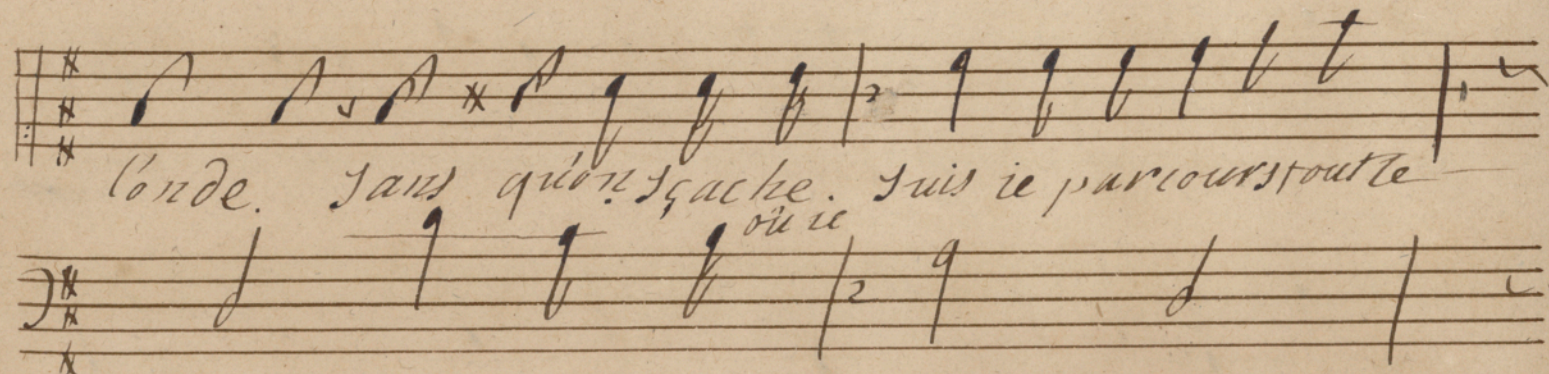 l'onde. sans qu'on sçache. suis ie parcours tout le
où ie